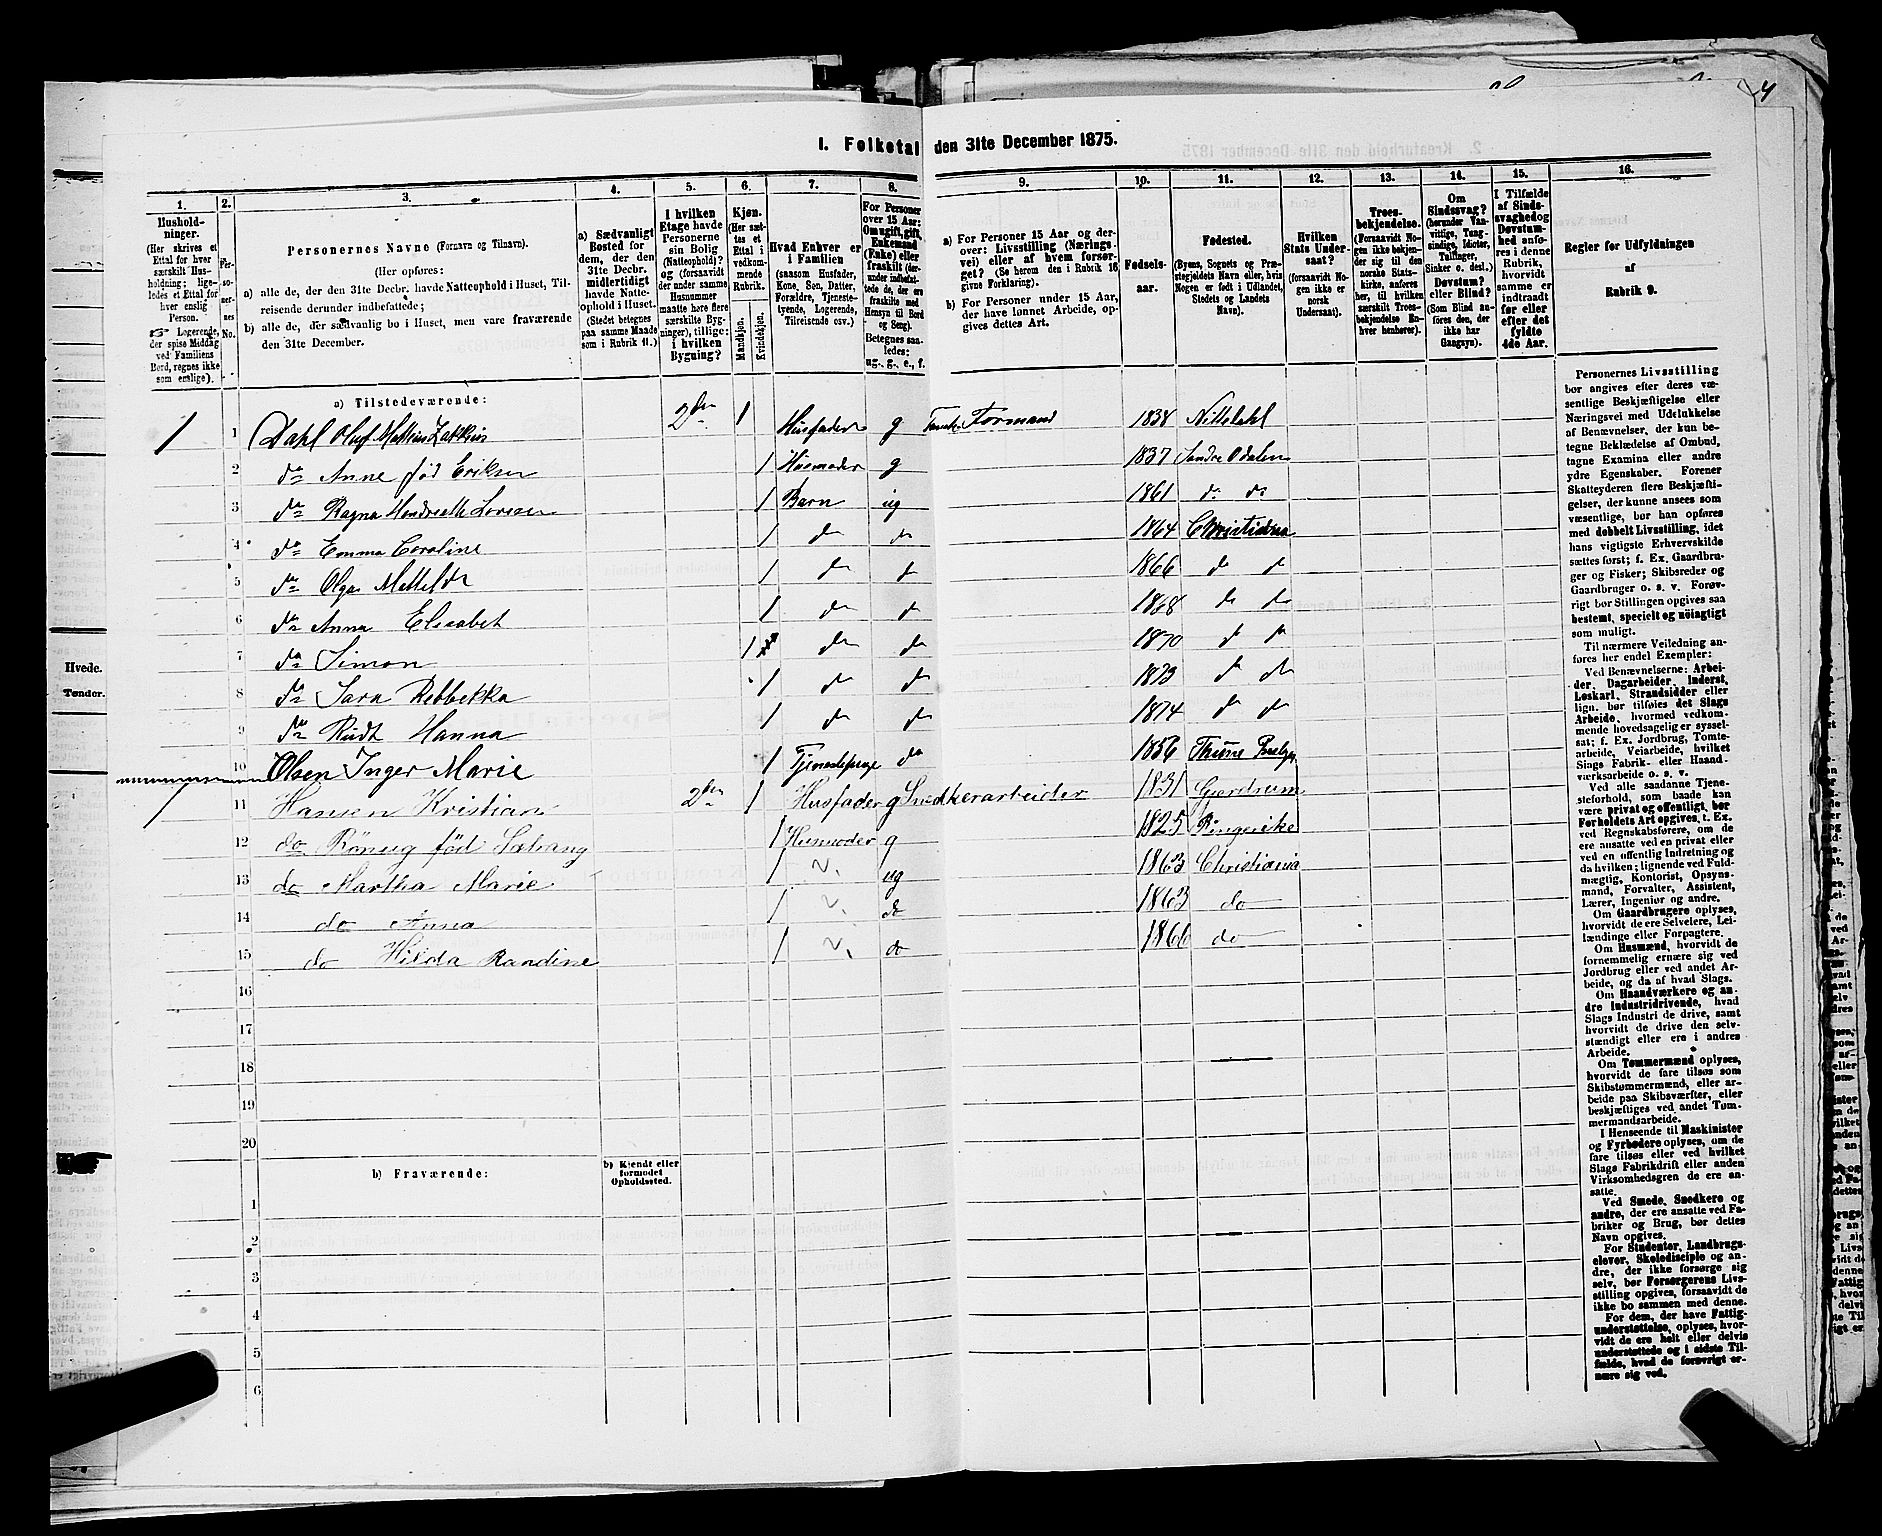 4
I. Folketal den 31te December 1875.
1. 2. 3. 4. 5. 6. 7. 8. 9. 10. 11. 12. 13. 14. 15. 16.
Hushold-
ninger.
(Her skrives et
Ettal for hver
særskilt Hus-
holdning; lige-
ledes et Ettal for
hver enslig
Person.
☞ Logerende,
der spise Middag
ved Familiens
Bord, regnes ikke
som enslige).
Per-
so-
ner-
nes
No.
Personernes Navne (Fornavn og Tilnavn).
(Her opføres:
a) alle de, der den 31te Decbr. havde Natteophold i Huset, Til-
reisende derunder indbefattede;
b) alle de, der sædvanlig bo i Huset, men vare fraværende
den 31te December.
a) Sædvanligt
Bosted for
dem, der den
31te Decbr.
midlertidigt
havde Natte-
ophold i Huset.
(Stedet betegnes
paa samme Maade
som i Rubrik 11.)
I hvilken
Etage havde
Personerne
sin Bolig
(Natteophold)?
og (forsaavidt
der under samme
Husnummer
maatte høre flere
særskilte Byg-
ninger), tillige:
i hvilken
Bygning?
Kjøn.
(Her sæt-
tes et
Ettal i
vedkom-
mende
Rubrik.
Mandkjøn.
Kvindekjøn.
Hvad Enhver er
i Familien
(saasom Husfader,
Kone, Søn, Datter,
Forældre, Tjeneste-
tyende, Logerende,
Tilreisende osv.)
For Personer
over 15 Aar:
Om ugift, gift,
Enkemand
(Enke) eller
fraskilt (der-
under indbefat-
tede de, der ere
fraskilte med
Hensyn til Bord
og Seng).
Betegnes saa-
ledes:
ug., g., e., f.
a) For Personer 15 Aar og der-
over: Livsstilling (Nærings-
vei) eller af hvem forsør-
get? (Se herom den i Rubrik 16
givne Forklaring).
b) For Personer under 15 Aar,
der have lønnet Arbeide, op-
gives dettes Art.
Fødsels-
aar.
Fødested.
(Byens, Sognets og Præ-
stegjeldets Navn eller, hvis
Nogen er født i Udlandet,
Stedets og Landets
Navn).
Hvilken
Stats Under-
saat?
(forsaavidt No-
gen ikke er
norsk
Undersaat).
Troes-
bekjendelse.
(Forsaavidt No-
gen ikke bekjen-
der sig til den
norske Stats-
kirke, anføres
her, til hvilken
særskilt Troes-
bekjendelse En-
hver henhører).
Om
Sindssvag?
(herunder Van-
vittige, Tung-
sindige, Idioter,
Tullinger,
Sinker o. desl.)
Døvstum?
eller Blind?
(Som Blind an-
føres den, der
ikke har
Gangsyn).
I Tilfælde
af Sinds-
svaghed og
Døvstum-
hed anfø-
res i denne
Rubrik,
hvorvidt
samme er
indtraadt
før eller
efter det
fyldte
4de Aar.
Regler for Udfyldningen
af
Rubrik 9.
a) Tilstedeværende:
1 1 Dahl Oluf Mathius Zakkius 2den 1 Husfader g Formand 1838 Nittedahl
2 do Anne fød Eriksen 1 Husmoder g 1837 Søndre Odalen
3 do Ragna Hendriette Lovise 1 Barn ug 1861 do do
4 do Emma Caroline 1 do do 1864 Christiania
5 do Olga Mathilde 1 do do 1866 do do
6 do Anna Elisabet 1 do do 1868 do do
7 do Simon 1 do do 1870 do do
8 do Sara Rebbekka 1 do do 1873 do do
9 do Rudt Hanna 1 do do 1874 do do
10 Olsen Inger Marie 1 Tjenestepige do 1856
1 11 Hansen Kristian 2den 1 Husfader g Snedkerarbeider 1831 Gjerdrum
12 do Rönnug fød 1 Husmoder g 1825 Ringerike
13 do Martha Marie 1 ug 1863 Christiania
14 do Anna 1 do 1863 do
15 do Hilda Randine 1 do 1866 do
16
17
18
19
20
b) Fraværende:
b) Kjendt eller
formodet
Opholdssted.
1
2
3
4
5
6
Personernes Livsstilling
bør angives efter deres væ-
sentlige Beskjæftigelse eller
Næringsvei med Udelukkelse
af Benævnelser, der kun be-
tegne Beklædelse af Ombud,
tagne Examina eller andre
ydre Egenskaber. Forener
Skatteyderen flere Beskjæfti-
gelser, der kunne ansees som
væsentlige, bør han opføres
med dobbelt Livsstilling, idet
hans vigtigste Erhvervskilde
sættes først; f. Ex. Gaardbru-
ger og Fisker; Skibsreder og
Gaardbruger o. s. v. Forøv-
rigt bør Stillingen opgives saa
bestemt, specielt og nöiagtigt
som muligt.
Til nærmere Veiledning an-
føres her endel Exempler:
Ved Benævnelserne: Arbei-
der, Dagarbeider, Inderst,
Løskarl, Strandsidder eller
lign. bør tilføies det Slags
Arbeide, hvormed vedkom-
mende hovedsagelig er syssel-
sat; f. Ex. Jordbrug, Tomte-
arbeide, Veiarbeide, hvilket
Slags Fabrik- eller Haand-
værksarbeide o. s. v.
Ved alle saadanne Tjene-
steforhold, som baade kan
være private og offentlige, bør
Forholdets Art opgives, f. Ex.
ved Regnskabsførere, om de
ere ansatte ved en privat eller
ved en offentlig Indretning og
da hvilken; lignende ved Fuld-
mægtig, Kontorist, Opsyns-
mand, Forvalter, Assistent,
Lærer, Ingeniør og andre.
Om Gaardbrugere oplyses,
hvorvidt de ere Selveiere, Lei-
lændinge eller Forpagtere.
Om Husmænd, hvorvidt de
fornemmelig ernære sig ved
Jordbrug eller ved andet Ar-
beide, og da af hvad Slags.
Om Haandværkere og an-
dre Industridrivende, hvad
Slags Industri de drive, samt
hvorvidt de drive den selv-
stændigt eller ere i andres
Arbeide.
Om Tømmermænd oplyses,
hvorvidt de fare tilsøs som
Skibstømmermænd, eller ar-
beide paa Skibsværfter, eller
beskjæftiges ved andet Tøm-
mermandsarbeide.
I Henseende til Maskinister
og Fyrbødere oplyses, om de
fare tilsøs eller ved hvilket
Slags Fabrikdrift eller anden
Virksomhedsgren de ere an-
satte.
Ved Smede, Snedkere og
andre, der ere ansatte ved Fa-
briker og Brug, bør dettes
Navn opgives.
For Studenter, Landbrugs-
elever, Skoledisciple og an-
dre, der ikke forsørge sig
selv, bør Forsørgerens Livs-
stilling opgives, forsaavidt de
ikke bo sammen med denne.
For dem, der have Fattig-
understøttelse, oplyses, hvor-
vidt de ere helt eller delvis
understøttede og i sidste Til-
fælde, hvad de forøvrigt er-
nære sig ved.
Hvede.
Tønder.